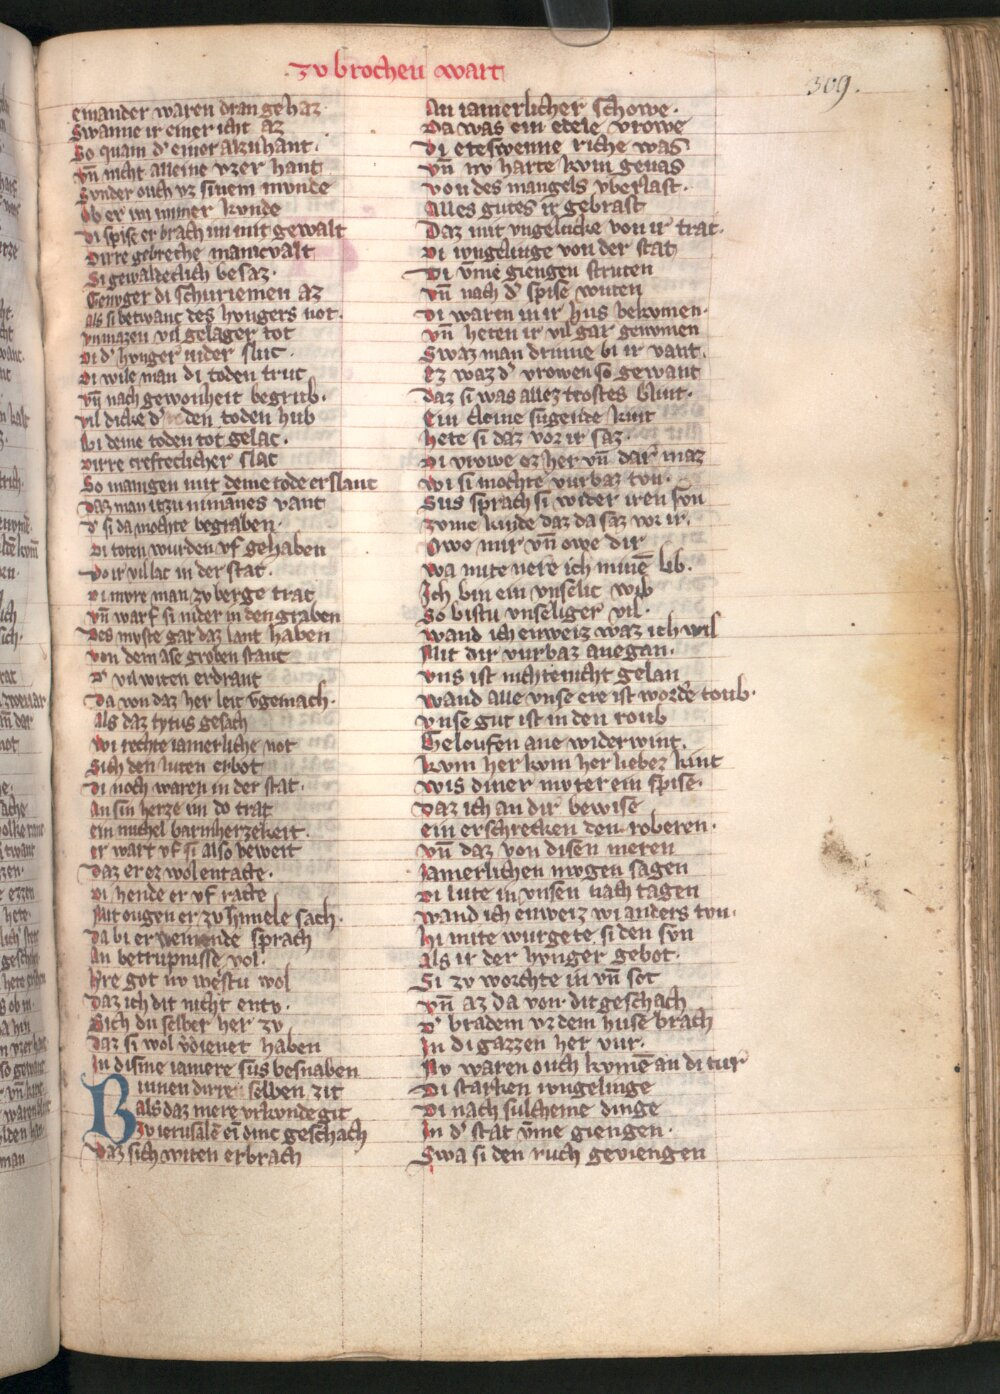 zv brochen wart
309.
einander waren dran gehaz
Swanne ir einer icht az
So quam dˀ einer alzuhant.
vn̄ nicht alleine vzer hant
Svnder ouch vz sinem mvnde
Ob er im immer kvnde
Di spise er brach im mit gewalt
Dirre gebreche manicvalt
Si gewaldeclich besaz.
Genvger di schuriemen az
als si betwanc des hvngers not.
vnmazen vil gelager tot
Di dˀ hvnger nider sluc.
Di wile man di toden truc
vn̄ nach gewonheit begrub.
vil dicke dˀ den toden hub
bi deme toden tot gelac.
Dirre crefteclicher slac
So manigen mit deme tode erslant
Daz man itzu nimānes vant
dˀ si da mochte begraben.
Di toten wurden vf gehaben
Do ir vil lac in der stat.
Di mvre man zv berge trat
vn̄ warf si nider in den graben
Des mvste gar daz lant haben
von dem ase grozen stanc
dˀ vil witen erdranc
Da von daz her leit v̄gemach.
Als daz tytus gesach
wi rechte iamerliche not
Sich den luten erbot
Di noch waren in der stat.
An sin herze im do trat
ein michel barmherzekeit.
er wart vf si also beweit
Daz er ez wol entacte.
Di hende er vf racte
Mit ougen er zv himele sach.
Da bi er weinende sprach
An betrupnisse vol.
Hre got nv westu wol
Daz ich dit nicht entv.
Sich du selber her zv
Daz si wol v̄dienet haben
In disme iamere sus besnaben
Binnen dirre selben zit
als daz mere vrkunde git
Zv ierusalē ein dinc geschach
Daz sich witen erbrach
An iamerlicher schowe.
Da was ein edele vrowe
Di eteswenne riche was
vn̄ nv harte kvm genas
von des mangels vberlast.
Alles gutes ir gebrast
Daz mit vngelucke von ir trat.
Di ivngelinge von der stat
Di vme giengen struten
vn̄ nach dˀ spise wuten
Di waren in ir hus bekvmen.
vn̄ heten ir vil gar genvmen
Swaz man drinne bi ir vant.
Ez waz dˀ vrowen so gewant
Daz si was allez trostes blint.
Ein cleine sugende kint
hete si daz vor ir saz.
Di vrowe ez her vn̄ dar maz
wi si mochte vurbaz tvn.
Sus sprach si wider iren svn
zvme kinde daz da saz vor ir.
Owe mir vn̄ owe dir
wa mite nere ich minē lib.
Ich bin ein vnselic wib
So bistu vnseliger vil.
wand ich enweiz waz ich wil
Mit dir vurbaz anegan.
vns ist nichtesnicht gelan
wand alle vnse ere ist wordē toub.
vnse gut ist in den roub
Geloufen ane widerwint.
kvm her kvm her liebez kint
wis diner mvter ein spise.
Daz ich an dir bewise
ein erschrecken den roberen.
vn̄ daz von disen meren
Iamerlichen mvgen sagen
Di lute in vnsen nach tagen
wand ich enweiz wi anders tvn.
hi mite wurgete si den svn
als ir der hvnger gebot.
Si zv worchte in vn̄ sot
vn̄ az da von dit geschach
dˀ bradem vz dem huse brach
In di gazzen her vur.
Nv waren ouch kvmē an di tur
Di starken ivngelinge
Di nach sulcheme dinge
In dˀ stat v̄me giengen.
Swa si den ruch geviengen